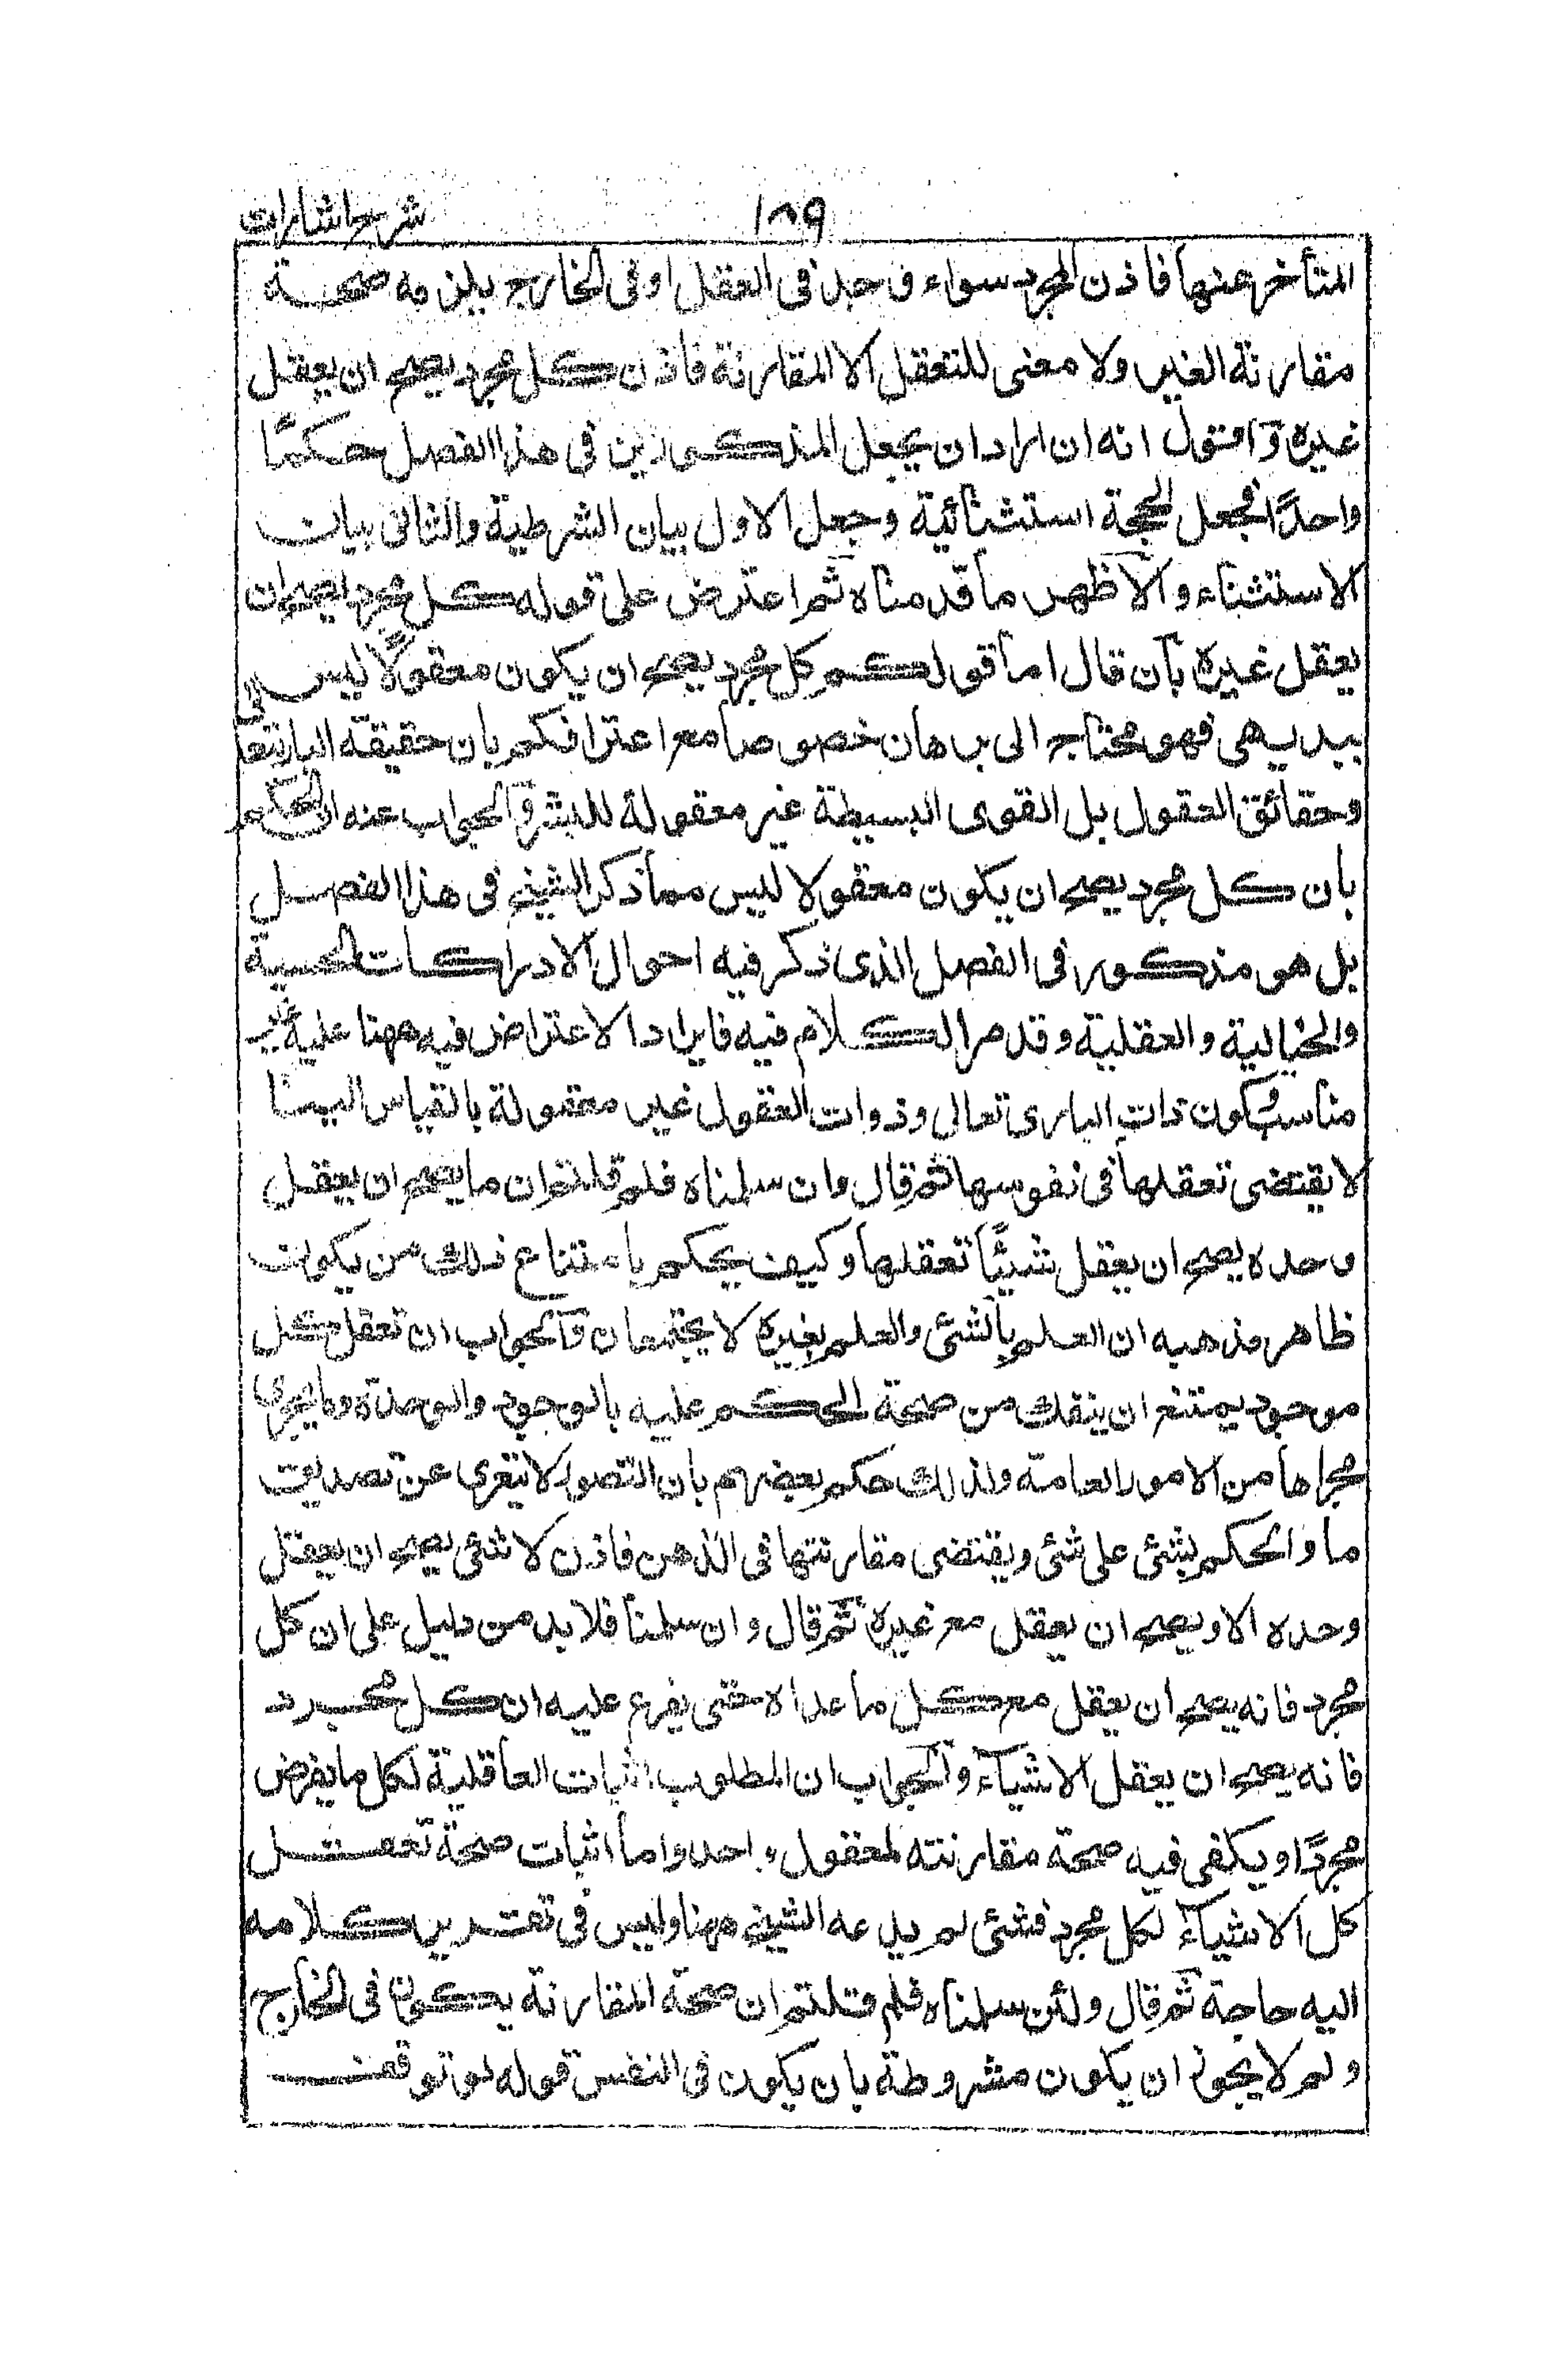 شرح اشارات
١٨٩
المتأخر عنها فاذن المجرد سواء وجد فى العقل او فى الخارج يلزمه صحة
مقارنة الغير ولا معنى للتعقل الا المقارنة فاذن كل مجرد يصح ان يعقل
غيره وَاقول انه ان اراد ان يجعل المذكورين فى هذا الفصل حكمًا
واحدًا فجعل الحجة استثنائية وجعل الاول بيان الشرطية والثانى بيان
الاستثناء والاظهر ما قدمناه ثم اعترض على قوله كل مجرد يصح ان
يعقل غيره بان قال اما قولكم كل مجرد يصح ان يكون معقولًا ليس
ببديهى فهو محتاج الى برهان خصوصا مع اعترافكم بان حقيقة البارى تعالى
وحقائق العقول بل القوى البسيطة غير معقولة للبشر والجواب عنه ان الحكم
بان كل مجرد يصح ان يكون معقولا ليس مما ذكر الشيخ فى هذا الفصل
بل هو مذكور فى الفصل الذى ذكر فيه احوال الادراكات الحسية
والخيالية والعقلية وقد مر الكلام فيه فايراد الاعتراض فيه ههنا عليه غير
مناسب وكون ذات البارى تعالى وذوات العقول غير معقولة بالقياس الينا
لا يقتضى تعقلها فى نفوسها ثم قال وان سلمناه فلم قلتم ان ما يصح ان يعقل
وحده يصح ان يعقل شيئًا تعقلها وكيف يحكم بامتناع ذلك من يكون
ظاهر مذهبه ان العلم بالشئ والعلم بغيره لا يجتمعان والجواب ان تعقل كل
موجود يمتنع ان ينفك من صحة الحكم عليه بالوجود والوحدة وما يجرى
مجراها من الامور العامة ولذلك حكم بعضهم بان التصور لا يتعرى عن تصديق
ما والحكم بشئ على شئ ويقتضى مقارنتها فى الذهن فاذن لا شئ يصح ان يعقل
وحده الا ويصح ان يعقل مع غيره ثم قال وان سلمنا فلا بد من دليل على ان كل
مجرد فانه يصح ان يعقل مع كل ما عداه حتى يفرع عليه ان كل مجرد
فانه يصح ان يعقل الاشياء والجواب ان المطلوب اثبات العاقلية لكل ما يفرض
مجردًا ويكفى فيه صحة مقارنته لمعقول واحد واما اثبات صحة تعقل
كل الاشياء لكل مجرد فشئ لم يدعه الشيخ ههنا وليس فى تقرير كلامه
اليه حاجة ثم قال ولئن سلمناه فلم قلتم ان صحة المقارنة يكون فى الخارج
ولم لا يجوز ان يكون مشروطة بان يكون فى النفس قوله لو توقفت